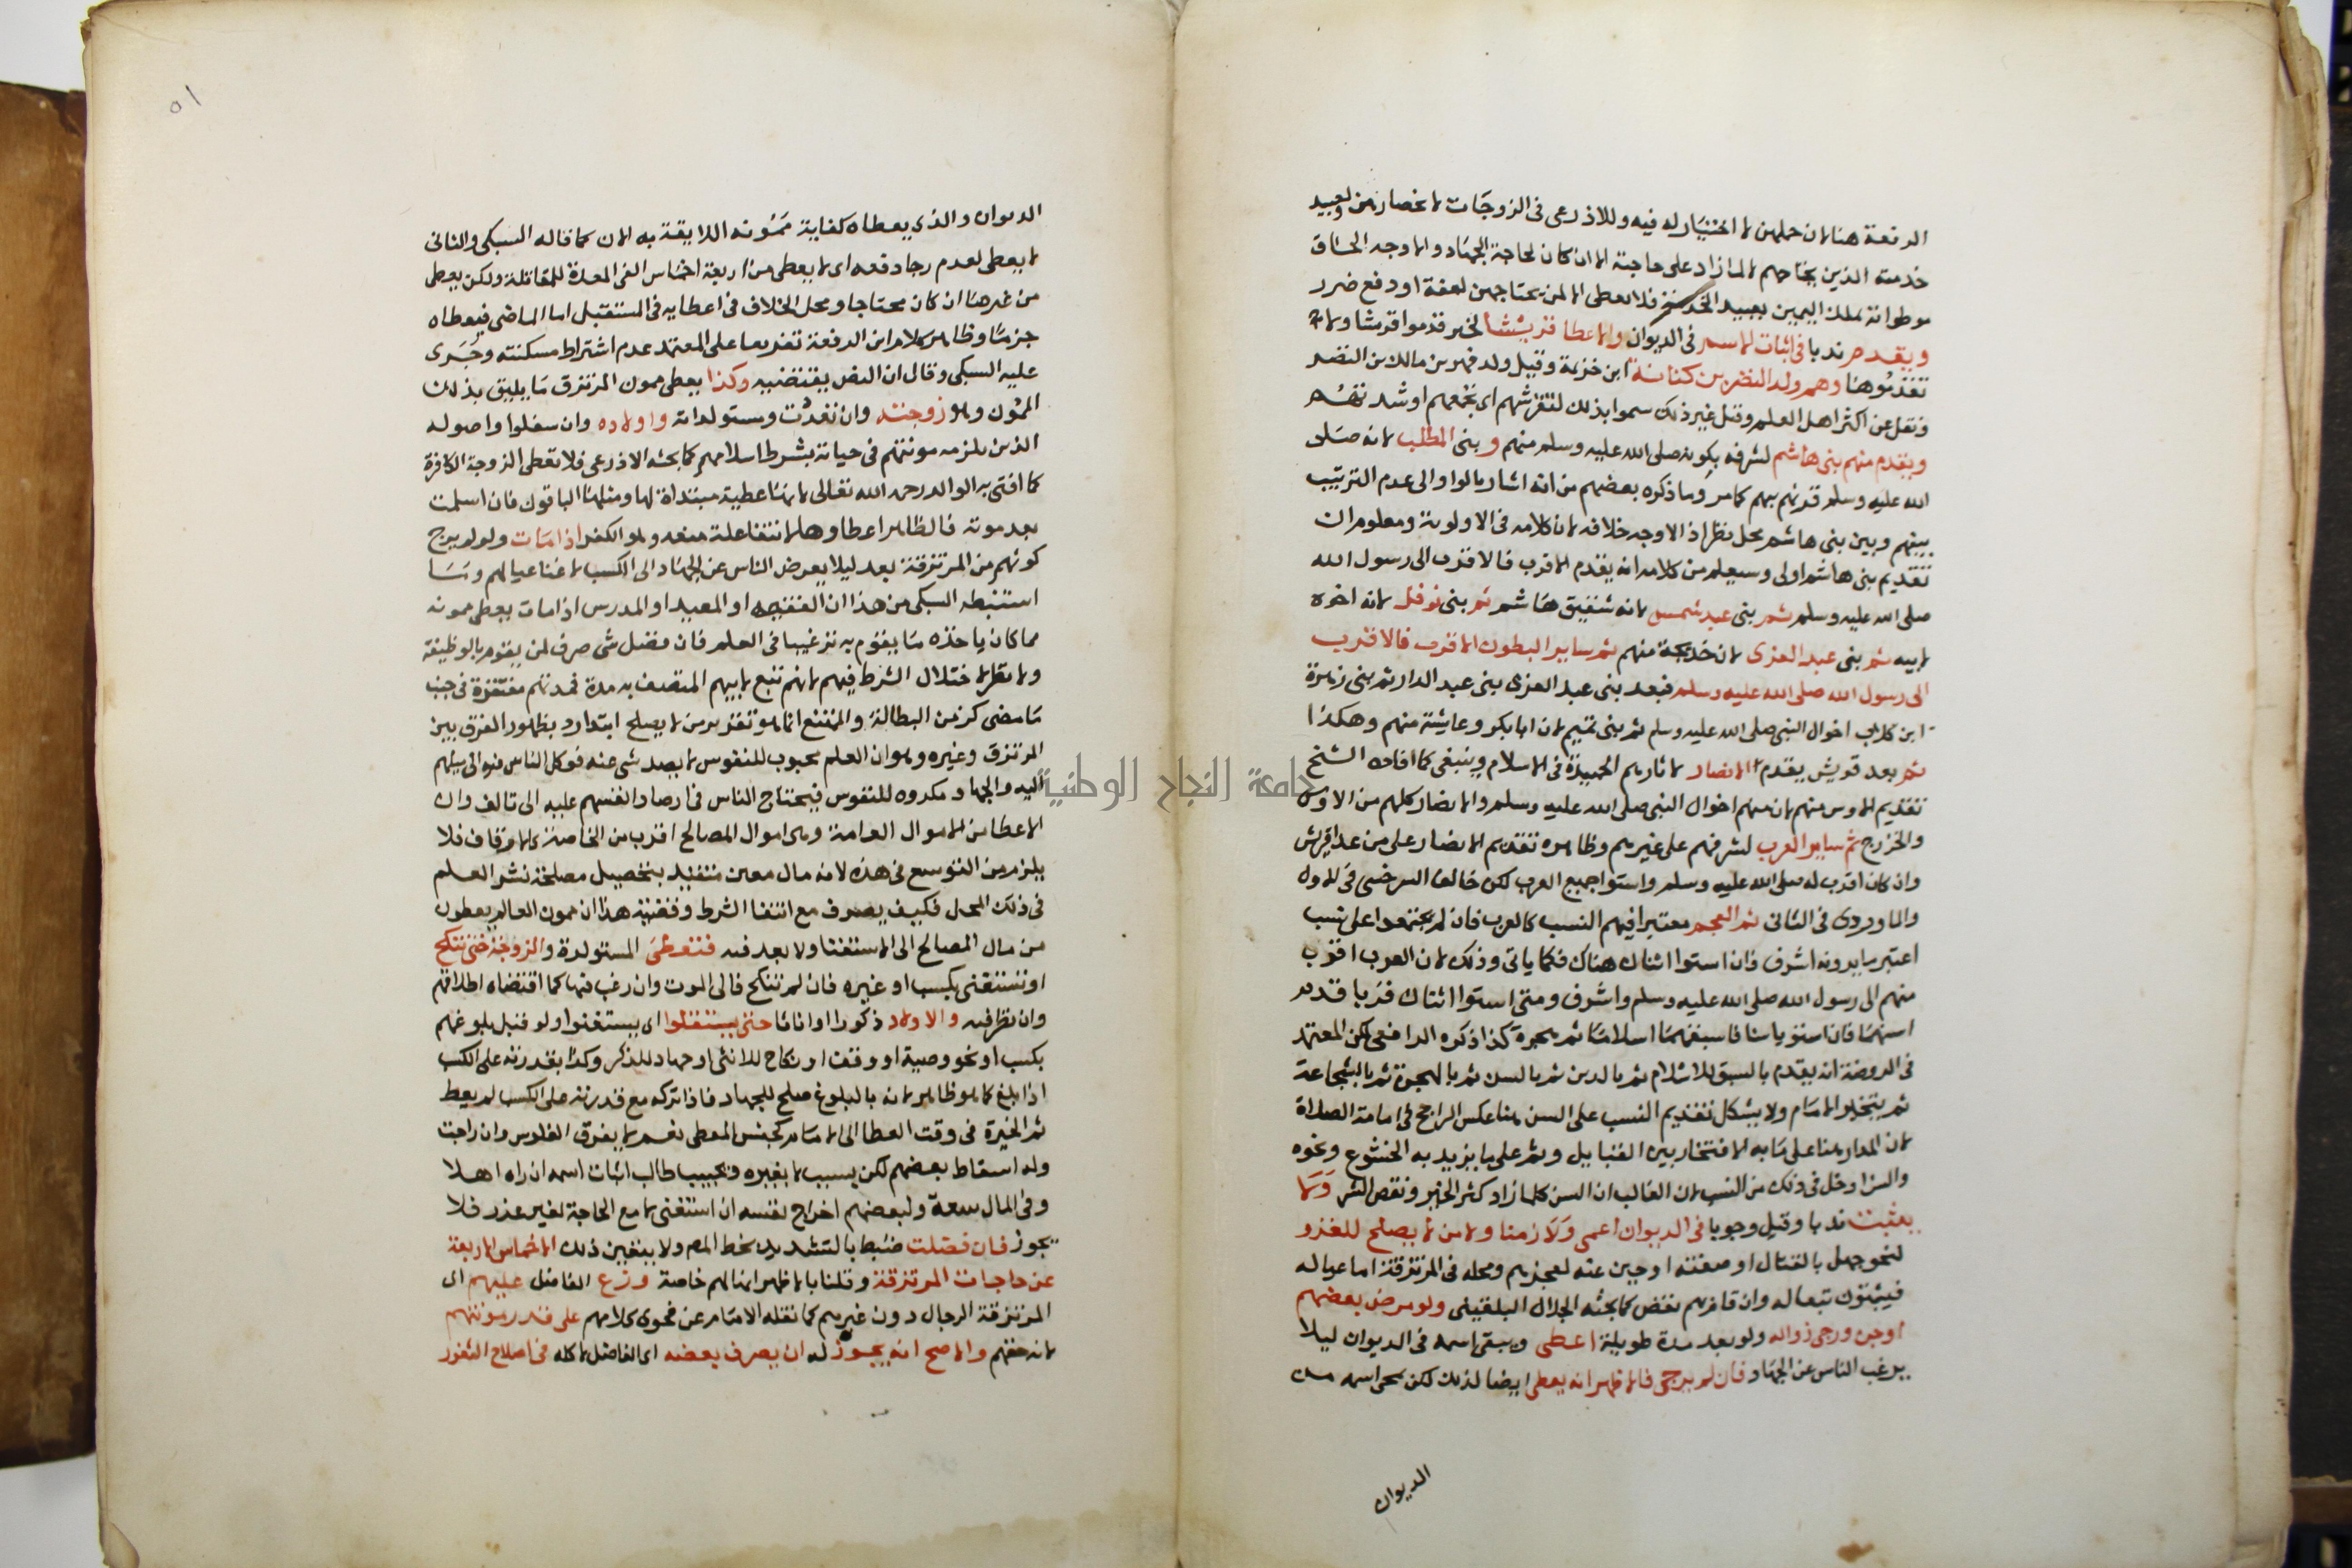 الرفعة هنا لان حملهن لا اختيار له فيه وللاذرعى فى الزوجات لانحصارهن ولعبيد
خدمته الذين يحتاجهم لا ما زاد على حاجته الا ان كان لحاجة الجهاد والاوجه الحاق
موطوآته بملك اليمين بعبيد الخدمة فلا يعطى الا لمن يحتاجهن لعفة او دفع ضرر
ويقدم ندبا فى اثبات الاسم فى الديوان والاعطا قريشا لخبر قدموا قريشا ولا
تقدموها وهم ولد النضر بن كنانة ابن خزيمة وقيل ولد فهر بن مالك بن النضر
ونقل عن اكثر اهل العلم وقيل غير ذلك سموا بذلك لتقرشهم اى تجمعهم او شدتهم
ويقدم منهم بنى هاشم لشرفه بكونه صلى الله عليه وسلم منهم وبنى المطلب لانه صلى
الله عليه وسلم قرنهم بهم كما مر وما ذكره بعضهم من انه اشار بالواو الى عدم الترتيب
بينهم وبين بنى هاشم محل نظر اذ الاوجه خلافه لان كلامه فى الاولوية ومعلوم ان
تقديم بنى هاشم اولى وسيعلم من كلامه انه يقدم الاقرب فالاقرب الى رسول الله
صلى الله عليه وسلم ثم بنى عبد شمس لانه شقيق هاشم ثم بنى نوفل لانه اخوه
لابيه ثم بنى عبد العزى لان خديجة منهم ثم ساير البطون الاقرب فالاقرب
الى رسول الله صلى الله عليه وسلم فبعد بنى عبد العزى بنى عبد الدار ثم بنى زهرة
ابن كلاب اخوال النبى صلى الله عليه وسلم ثم بنى تميم لان ابا بكر وعايشة منهم وهكذا
ثم بعد قريش يقدم الانصار لاثارهم الحميدة فى الاسلام وينبغى كما افاده الشيخ
تقديم الاوس منهم لان منهم اخوال النبى صلى الله عليه وسلم والانصار كلهم من الاوس
والخزرج ثم ساير العرب لشرفهم على غيرهم وظاهره تقديم الانصار على من عدا قريش
وان كان اقرب له صلى الله عليه وسلم واستوا جميع العرب لكن خالف السرخسى فى الاول
والماوردى فى الثانى ثم العجم معتبرا فيهم النسب كالعرب فان لم يجتمعوا على نسب
اعتبر ما يرونه اشرف فان استوا اثنان هناك فكما ياتى وذلك لان العرب اقرب
منهم الى رسول الله صلى الله عليه وسلم واشرف ومتى استوا اثنان قربا قدم
اسنهما فان استويا سنا فاسبقهما اسلاما ثم هجرة كذا ذكره الرافعى لكن المعتمد
فى الروضة انه يقدم بالسبق للاسلام ثم بالدين ثم بالسن ثم بالهجرة ثم بالشجاعة
ثم يتخير الامام ولا يشكل تقديم النسب على السن هنا عكس الراجح فى امامة الصلاة
لان المدار هنا على ما به الافتخار بين القبايل وثم على ما يزيد به الخشوع ونحوه
والسن ادخل فى ذلك من النسب لان الغالب ان السن كلما زاد كثر الخير ونقص الشر ولا
يثبت ندبا وقيل وجوبا فى الديوان اعمى ولا زمنا ولا من لا يصلح للغزو
لنحو جهل بالقتال او صفته او جبن عنه لعجزهم ومحله فى المرتزقة اما عياله
فيثبتون تبعا له وان قام بهم نقص كما بحثه الجلال البلقينى ولو مرض بعضهم
او جن ورجى زواله ولو بعد مدة طويلة اعطى ويبقى اسمه فى الديوان ليلا
يرغب الناس عن الجهاد فان لم يرجى فالاظهر انه يعطى ايضا لذلك لكن يمحى اسمه من
الديوان
٥١
الديوان والذى يعطاه كفاية ممونه اللايقة به الان كما قاله السبكى والثانى
لا يعطى لعدم رجا دفعه اى لا يعطى من اربعة اخماس الفى المعدة للمقاتلة ولكن يعطى
من غيرها ان كان محتاجا ومحل الخلاف فى اعطايه فى المستقبل اما الماضى فيعطاه
جزما وظاهر كلام ابن الرفعة تفريعا على المعتمد عدم اشتراط مسكنته وجرى
عليه السبكى وقال ان النص يقتضيه وكذا يعطى ممون المرتزق ما يليق بذلك
الممون وهو زوجته وان تعددت ومستولداته واولاده وان سفلوا واصوله
الذين يلزمه مونتهم فى حياته بشرط اسلامهم كما بحثه الاذرعى فلا تعطى الزوجة الكافرة
كما افتى به الوالد رحمه الله تعالى لانها عطية مبتداة لها ومثلها الباقون فان اسلمت
بعد موته فالظاهر اعطاوها لانتفا علة منعه وهو الكفر اذا مات ولو لم يرج
كونهم من المرتزقة بعد ليلا يعرض الناس عن الجهاد الى الكسب لاغنا عيالهم وما
استنبطه السبكى من هذا ان الفقيه او المعيد او المدرس اذا مات يعطى ممونه
مما كان ياخذه ما يقوم به ترغيبا فى العلم فان فضل شى صرف لمن يقوم بالوظيفة
ولا نظر لاختلال الشرط فيهم لانهم تبع لابيهم المتصف به مدة فمدتهم مغتفرة فى جنب
ما مضى كزمن البطالة والممتنع انما هو تقرير من لا يصلح ابتدارد بظهور الفرق بين
المرتزق وغيره وهو ان العلم محبوب للنفوس لا يصد شى عنه فوكل الناس فيه الى ميلهم
اليه والجهاد مكروه للنفوس فيحتاج الناس فى ارصاد انفسهم عليه الى تالف وان
الاعطا من الاموال العامة وهى اموال المصالح اقرب من الخاصة كالاوقاف فلا
يلزم من التوسع فى هذه لانه مال معين متقيد بتحصيل مصلحة نشر العلم
فى ذلك المحل فكيف يصرف مع انتفا الشرط وقضية هذا ان ممون العالم يعطون
من مال المصالح الى الاستغنا ولا بعد فيه فتعطى المستولدة والزوجة حتى تنكح
او تستغنى بكسب او غيره فان لم تنكح فالى الموت وان رغب فيها كما اقتضاه اطلاقهم
وان نظر فيه والاولاد ذكورا او اناثا حتى يستقلوا اى يستغنوا ولو قبل بلوغهم
بكسب او نحو وصية او وقف او نكاح للانثى او جهاد للذكر وكذا بقدرته على الكسب
اذا بلغ كما هو ظاهر لانه بالبلوغ صلح للجهاد فاذا تركه مع قدرته على الكسب لم يعط
ثم الخيرة فى وقت العطا الى الامام كجنس المعطى نعم لا يفرق الفلوس وان راجت
وله اسقاط بعضهم لكن بسبب لا بغيره ويجيب طالب اثبات اسمه ان راه اهلا
وفى المال سعة ولبعضهم اخراج نفسه ان استغنى لا مع الحاجة لغير عذر فلا
يجوز فان فضلت ضبط بالتشديد بخط المص ولا يتعين ذلك الاخماس الاربعة
عن حاجات المرتزقة وقلنا بالاظهر انها لهم خاصة وزع الفاضل عليهم اى
المرتزقة الرجال دون غيرهم كما نقله الامام عن فحوى كلامهم على قدر مونتهم
لانه حقهم والاصح انه يجوز له ان يصرف بعضه اى الفاضل لا كله فى اصلاح الثغور
جامعة النجاح الوطنية